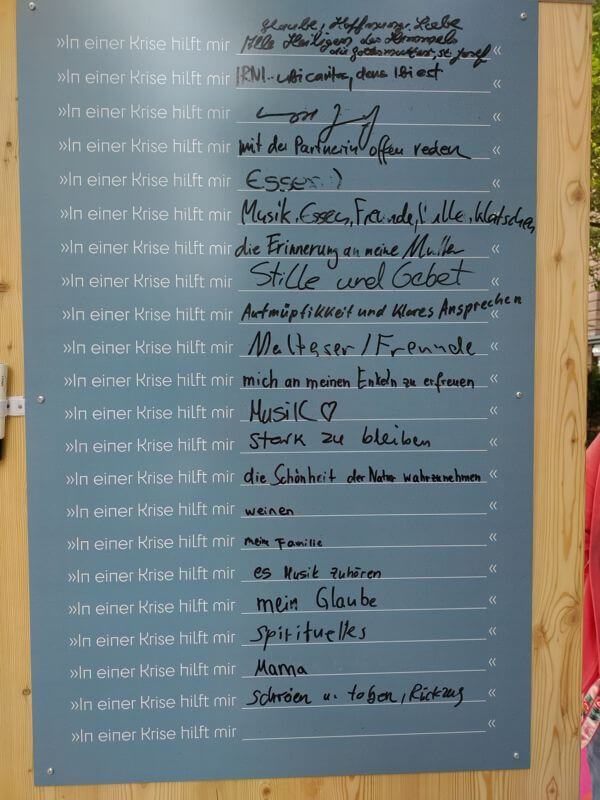 Glaube, Hoffnung, Liebe
»In einer Krise hilft mir Alle Heiligen des Himmels «
die Gottesmutter, st. Josef
»In einer Krise hilft mir ubi caritas, deus ibi est «
»In einer Krise hilft mir «
»In einer Krise hilft mir mit der Partnerin offen reden «
»In einer Krise hilft mir Essen :) «
»In einer Krise hilft mir Musik, Essen, Freunde, klatschen «
»In einer Krise hilft mir die Erinnerung an meine Mutter «
»In einer Krise hilft mir Stille und Gebet «
»In einer Krise hilft mir Aufmüpfikkeit und klares Ansprechen «
»In einer Krise hilft mir Malteser/Freunde «
»In einer Krise hilft mir mich an meinen Enkeln zu erfreuen «
»In einer Krise hilft mir Musik ♡ «
»In einer Krise hilft mir stark zu bleiben «
»In einer Krise hilft mir die Schönheit der Natur wahrzunehmen «
»In einer Krise hilft mir weinen «
»In einer Krise hilft mir meine Familie «
»In einer Krise hilft mir es Musik zuhören «
»In einer Krise hilft mir mein Glaube «
»In einer Krise hilft mir spirituelles «
»In einer Krise hilft mir Mama «
»In einer Krise hilft mir schreien u. toben, Rückzug «
»In einer Krise hilft mir «